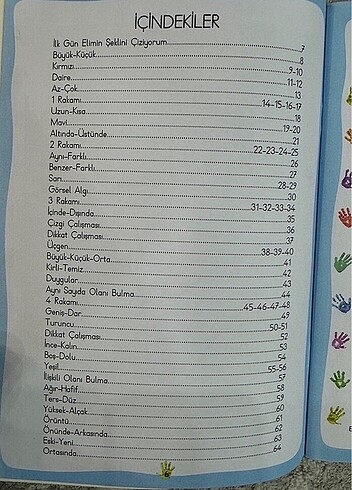 İÇİNDEKİLER
İlk Gün Elimin Şeklini Çiziyorum...7
Büyük-Küçük...8
Kırmızı...9-10
Daire...11-12
Az-Çok...13
1 Rakamı...14-15-16-17
Uzun-Kısa...18
Mavi...19-20
Altında-Üstünde...21
2 Rakamı...22-23-24-25
Aynı-Farklı...26
Benzer-Farklı...27
Sarı...28-29
Görsel Algı...30
3 Rakamı...31-32-33-34
İçinde-Dışında...35
Çizgi Çalışması...36
Dikkat Çalışması...37
Üçgen...38-39-40
Büyük-Küçük-Orta...41
Kirli-Temiz...42
Duygular...43
Aynı Sayıda Olanı Bulma...44
4 Rakamı...45-46-47-48
Geniş-Dar...49
Turuncu...50-51
Dikkat Çalışması...52
İnce-Kalın...53
Boş-Dolu...54
Yeşil...55-56
İlişkili Olanı Bulma...57
Ağır-Hafif...58
Ters-Düz...59
Yüksek-Alçak...60
Örüntü...61
Önünde-Arkasında...62
Eski-Yeni...63
Ortasında...64